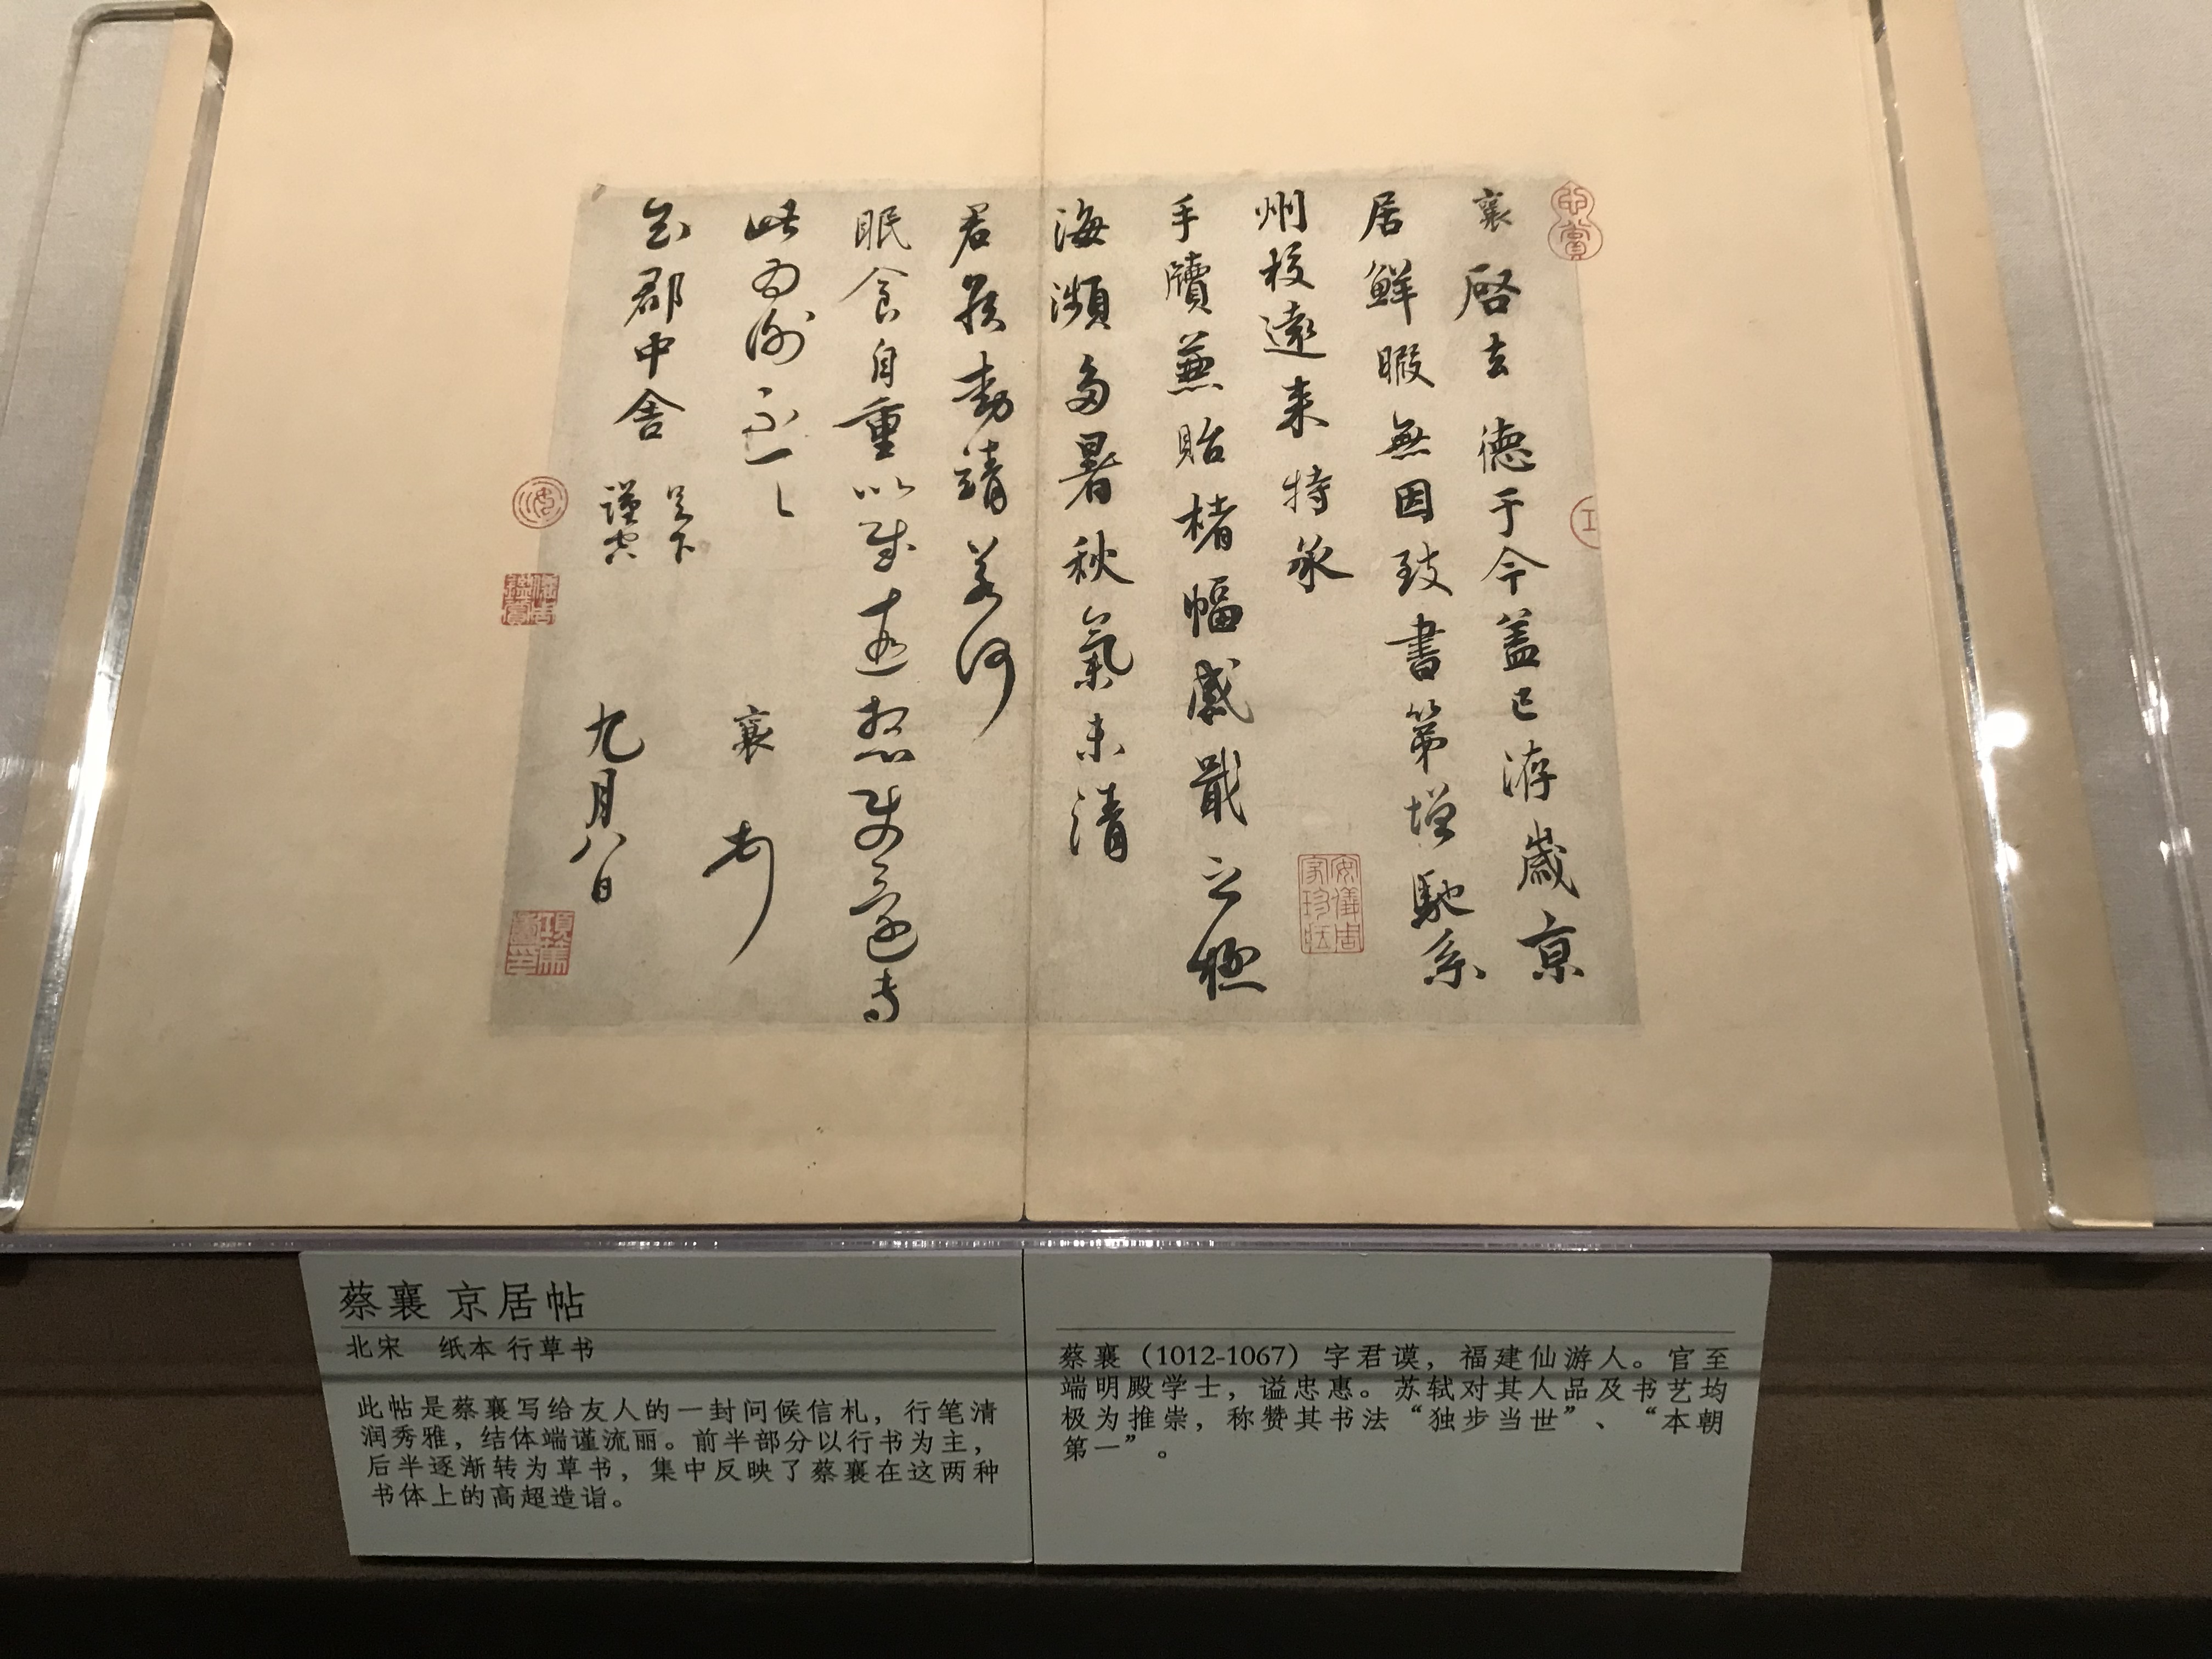 襄啓去德于今盖已洊歲京
居鮮暇無因致書第增馳系
州校遠来特承
手牘兼貽楮幅感戢之極
海瀕多暑秋氣未清
君侯動靖若何
眠食自重以慰遠想
此為謝不一一
襄
公郡中舍
足下
謹空
九月八日
安儀周家珍藏
蔡襄 京居帖
北宋 纸本 行草书
此帖是蔡襄写给友人的一封问候信札，行笔清
润秀雅，结体端谨流丽。前半部分以行书为主，
后半逐渐转为草书，集中反映了蔡襄在这两种
书体上的高超造诣。
蔡襄（1012-1067）字君谟，福建仙游人。官至
端明殿学士，谥忠惠。苏轼对其人品及书艺均
极为推崇，称赞其书法“独步当世”、“本朝
第一”。